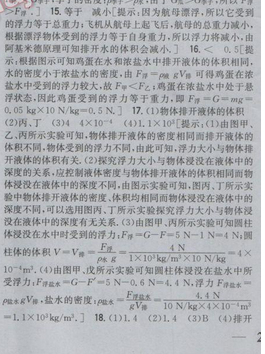 浮”。 15. 等于 减小[提示:因为航母漂浮,所以它受到
的浮力等于总重力;飞机从航母上起飞后,航母的总重力减小,
根据漂浮物体受到的浮力等于自身重力,所以浮力将减小,由
阿基米德原理可知排开水的体积会减小。] 16. < 0.5[提
示:根据图示可知鸡蛋在水和浓盐水中排开液体的体积相同,
水的密度小于浓盐水的密度,由 F浮=ρ液gV排 可得鸡蛋在浓
盐水中受到的浮力较大,故 F甲<F乙;鸡蛋在浓盐水中处于悬
浮状态,因此鸡蛋受到的浮力等于重力,即 F浮=G=mg=
0.05 kg×10 N/kg=0.5 N。] 17. (1)物体排开液体的体积
(2)丙、丁 (3)4 4×10⁻⁴ (4)1.1×10³[提示:(1)由图甲、
乙、丙所示实验可知,物体排开液体的密度相同而排开液体的
体积不同,物体受到的浮力不同,由此可知,浮力大小与物体排
开液体的体积有关。(2)探究浮力大小与物体浸没在液体中的
深度的关系,应控制液体密度与物体排开液体的体积相同而物
体浸没在液体中的深度不同,由图示实验可知,图丙、丁所示实
验中物体排开液体的密度、体积均相同而物体浸没在液体中的
深度不同,可以选用图丙、丁所示实验探究浮力大小与物体浸
没在液体中的深度有无关系。(3)由图甲、丙所示实验可知圆柱
体浸没在水中时受到的浮力:F浮=G-F=5 N-1 N=4 N;圆
柱体的体积 V=V排=F浮/ρ水g=4 N/1×10³kg/m³×10 N/kg=4×
10⁻⁴m³。(4)由图甲、戊所示实验可知圆柱体浸没在盐水中所
受浮力:F浮盐水=G-F′=5 N-0.6 N=4.4 N,浮力 F浮盐水=
ρ盐水gV排,盐水的密度:ρ盐水=F浮盐水/gV排=4.4 N/10 N/kg×4×10⁻⁴m³
=1.1×10³kg/m³。] 18. (1)1.4 (2)1.4 (3)B (4)排开